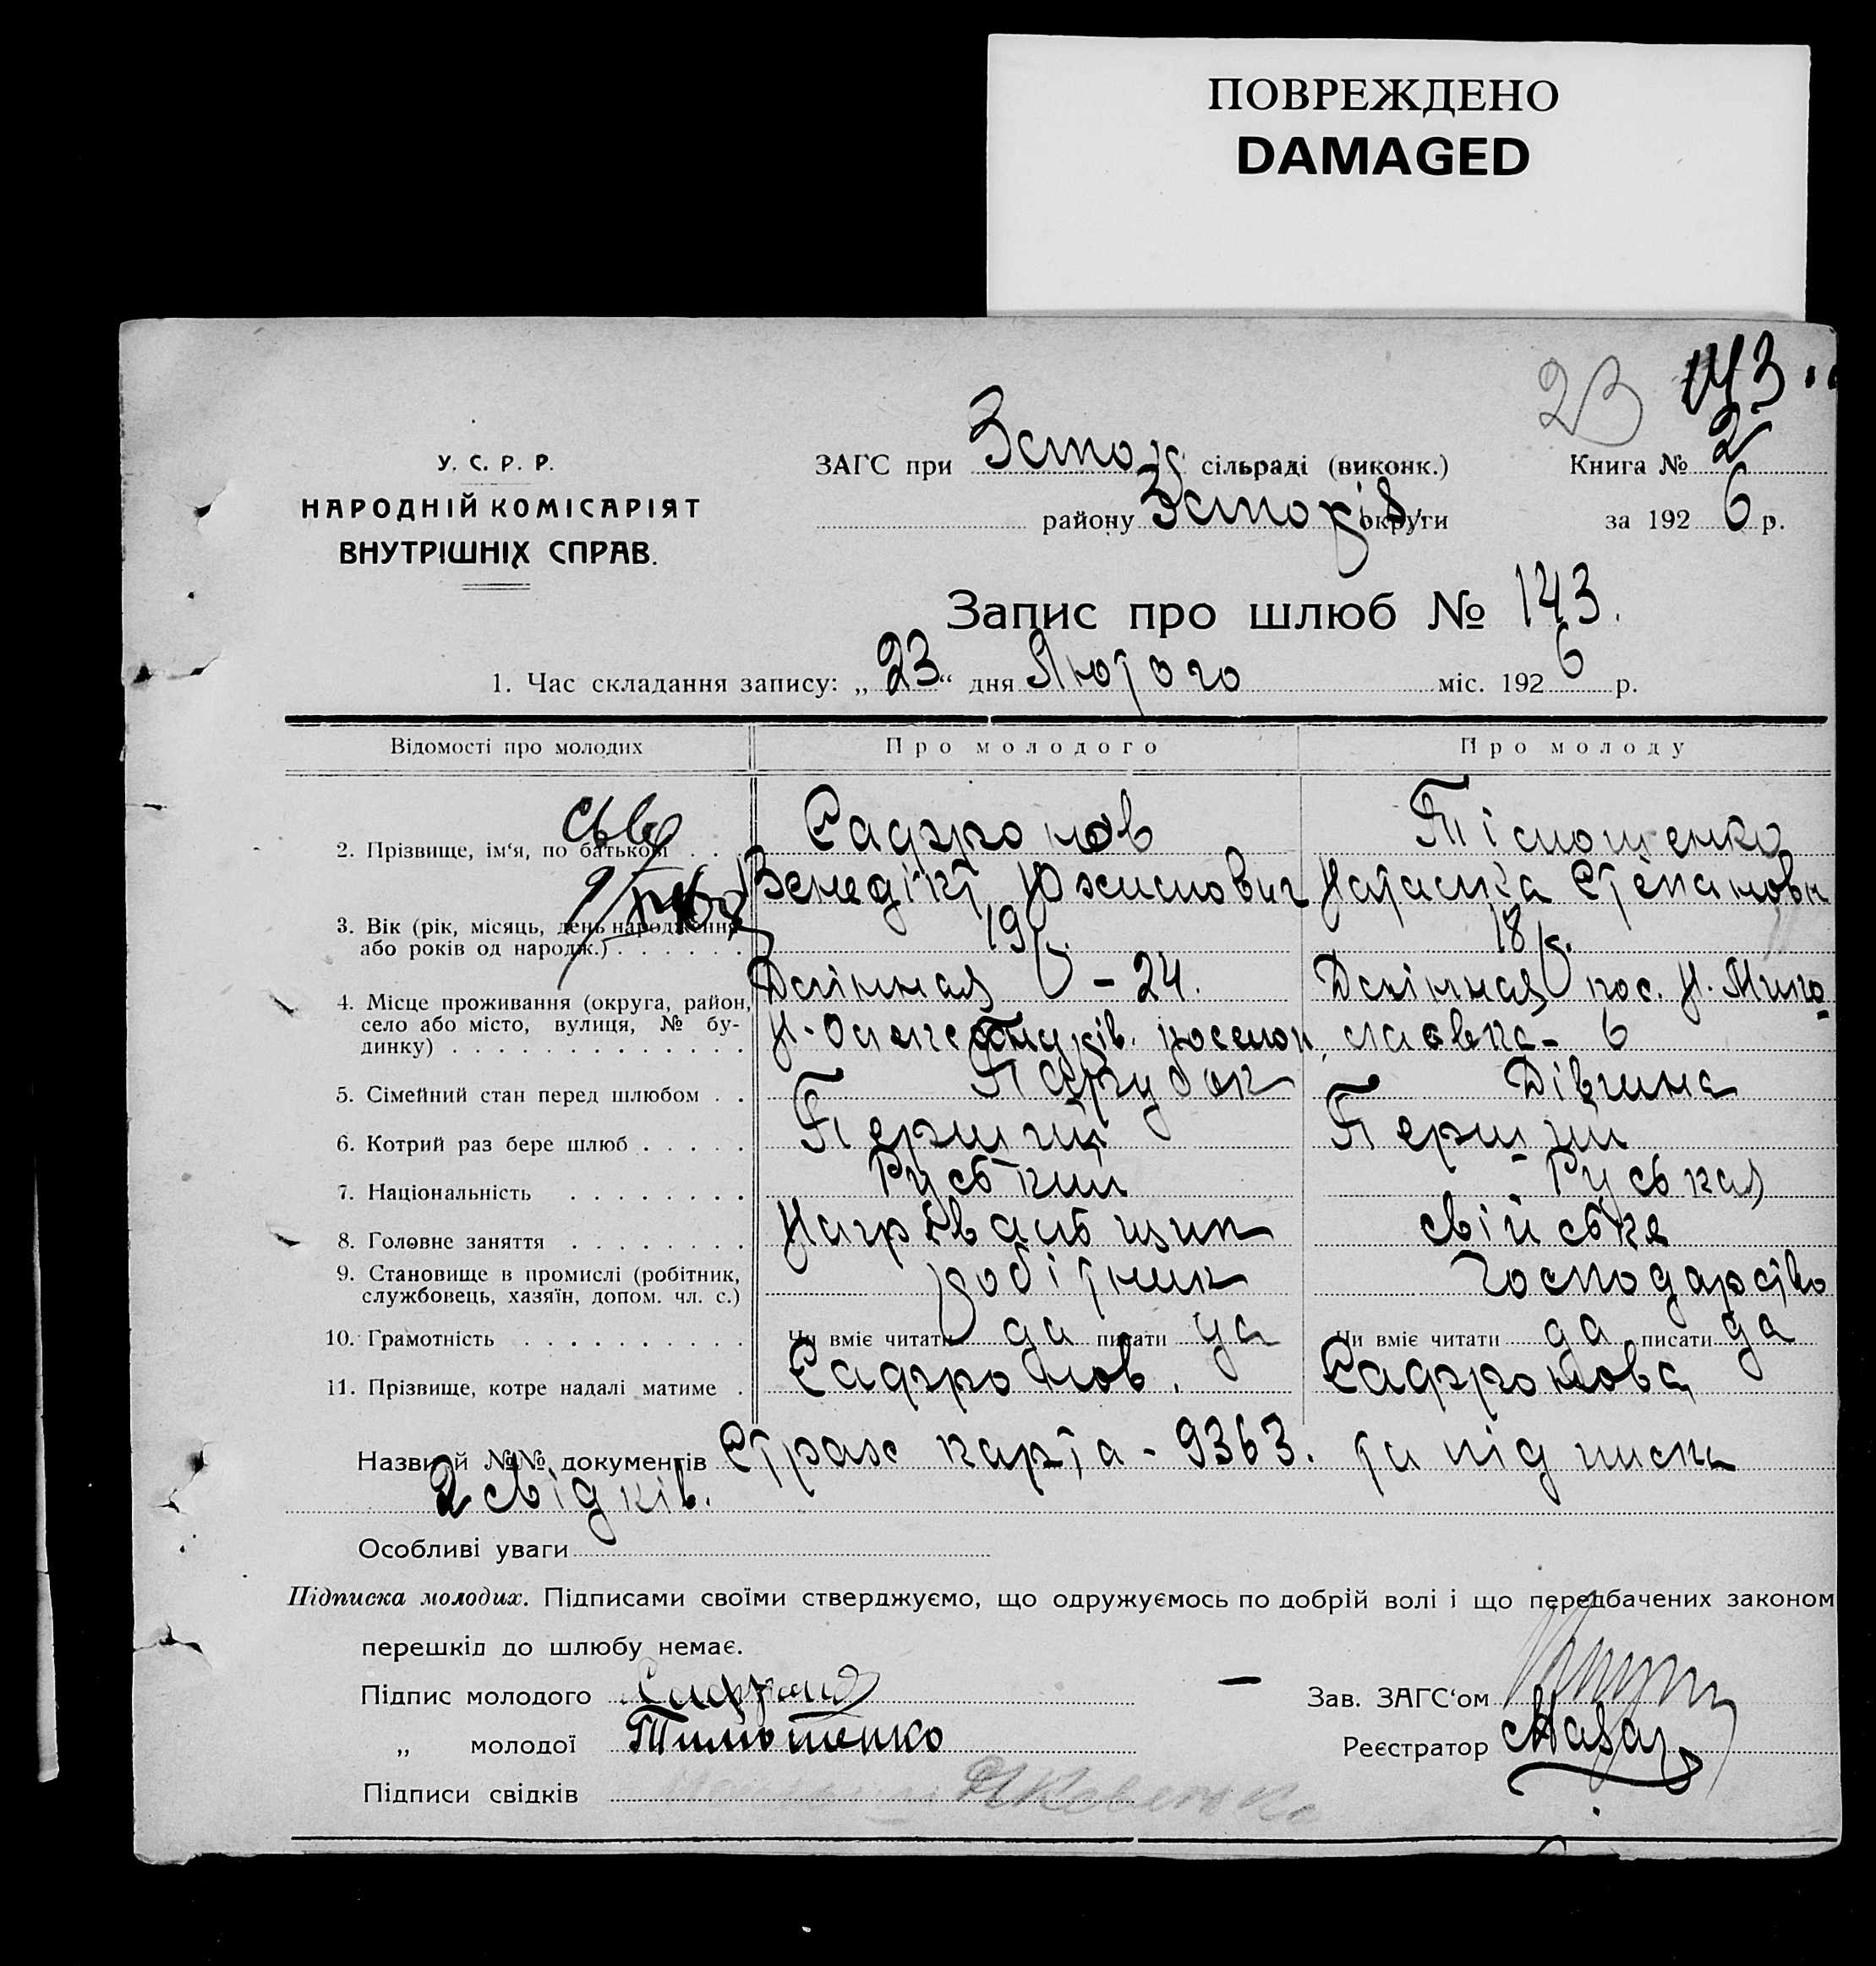 ПОВРЕЖДЕНО
DAMAGED
23 143
У. С. Р. Р.
НАРОДНІЙ КОМІСАРІЯТ
ВНУТРІШНІХ СПРАВ.
ЗАГС при сільраді (виконк.) Книга № 2
району округи за 1926 р.
Запис про шлюб № 143.
1. Час складання запису: „23“ дня Лютого міс. 1926 р.
Відомості про молодих Про молодого Про молоду
2. Прізвище, ім‘я, по батькові . . Сафронов Тімошенко
Венедікт Юхимович Наталка Степановн
3. Вік (рік, місяць, день народження 19 р. 18 р.
або років од народж.) . . . . . .
4. Місце проживання (округа, район, Долинная – 24. Долинная пос. Н. Мико
село або місто, вулиця, № бу- поселок, лаовка – 6
динку) . . . . . . . . . . . . .
5. Сімейний стан перед шлюбом . . Парубок Дівчина
6. Котрий раз бере шлюб . . . . . Перший Перший
7. Національність . . . . . . . . Руський Руськая
8. Головне заняття . . . . . . . . Нагрівальщик свійське
9. Становище в промислі (робітник, робітник господарство
службовець, хазяїн, допом. чл. с.)
10. Грамотність . . . . . . . . . . Чи вміє читати да писати да Чи вміє читати да писати да
11. Прізвище, котре надалі матиме . Сафронов. Сафронова
Назви й №№ документів Страх карта - 9363. та підписка
2 свідків.
Особливі уваги
Підписка молодих. Підписами своїми стверджуємо, що одружуємось по добрій волі і що передбачених законом
перешкід до шлюбу немає.
Підпис молодого Зав. ЗАГС‘ом
„ молодої Тимошенко Реєстратор
Підписи свідків